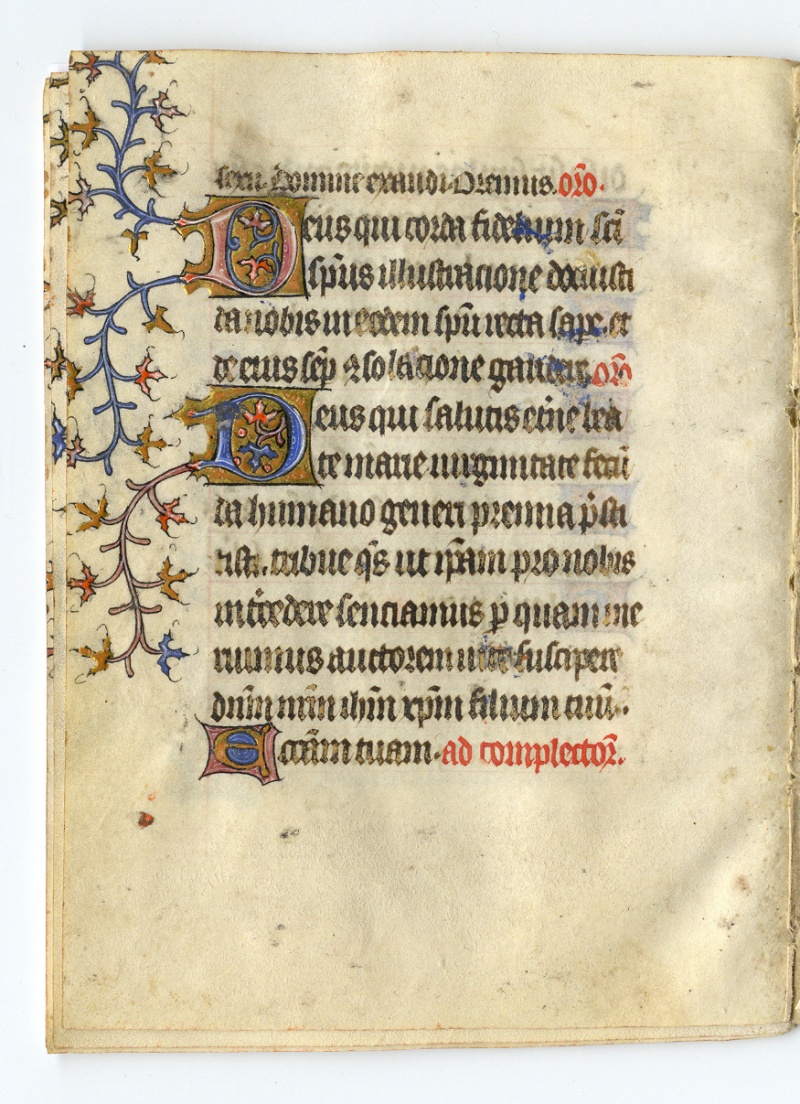 sexu. Domine exaudi. Oremus. orō.
Deus qui corda fidelium scī
spūs illustracione docuisti
da nobis in eodem spū recta sape. et
de eius sēp ꝯsolacione gaudere. orō
Deus qui salutis etñe bea
te marie uirginitate fecū
da humano generi premia p̄sti
tisti. tribue q̄s ut ip̄am pro nobis
int̄cedere senciamus ꝑ quam me
ruimus auctorem uite suscipere
dn̄m nrm̄ ihm̄ xp̄m filium tuū..
Et cr̄am tuam. ad complector̄.